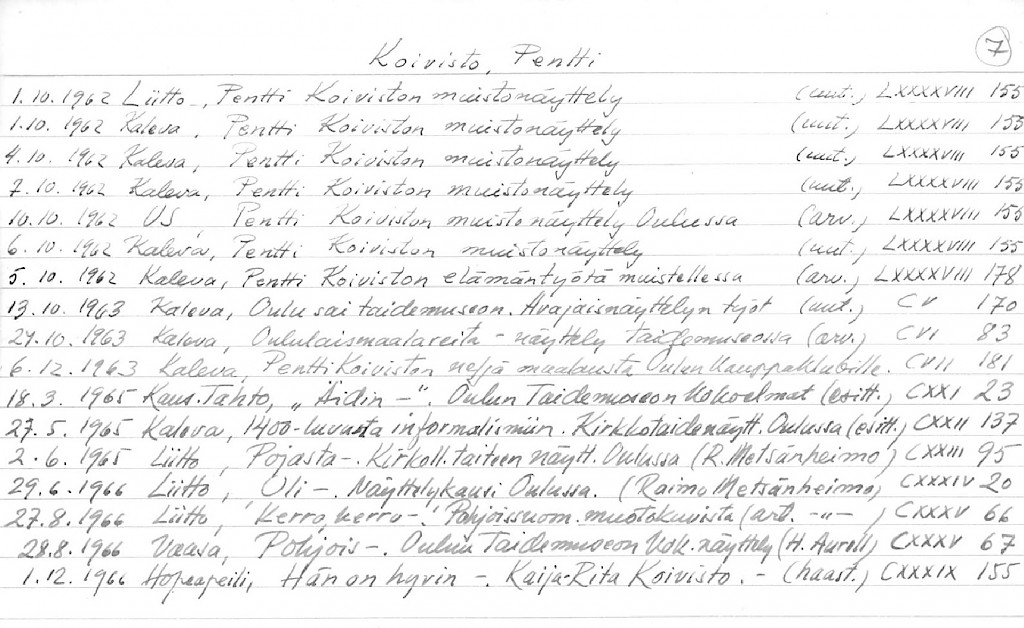 7
Koivisto, Pentti
1.10.1962 Liitto, Pentti Koiviston muistonäyttely (uut.) LXXXXVIII 155
1.10.1962 Kaleva, Pentti Koiviston muistonäyttely (uut.) LXXXXVIII 155
4.10.1962 Kaleva, Pentti Koiviston muistonäyttely (uut.) LXXXXVIII 155
7.10.1962 Kaleva, Pentti Koiviston muistonäyttely (uut.) LXXXXVIII 155
10.10.1962 US, Pentti Koiviston muistonäyttely Oulussa (arv.) LXXXXVIII 155
6.10.1962 Kaleva, Pentti Koiviston muistonäyttely (uut.) LXXXXVIII 155
5.10.1962 Kaleva, Pentti Koiviston elämäntyötä muistellessa (arv.) LXXXXVIII 178
13.10.1963 Kaleva, Oulu sai taidemuseon. Avajaisnäyttelyn työt (uut.) CV 170
27.10.1963 Kaleva, Oululaismaalareita - näyttely Taidemuseossa (arv.) CVI 83
6.12.1963 Kaleva, Pentti Koiviston neljä maalausta Oulun Kauppaklubille. CVII 181
18.3.1965 Kans.Tahto, "Äidin -". Oulun Taidemuseon kokoelmat (esitt.) CXXI 23
27.5.1965 Kaleva, 1400-luvusta informalismiin. Kirkkotaidenäytt. Oulussa (esitt.) CXXII 137
2.6.1965 Liitto, Pojasta-. Kirkoll. taiteen näytt. Oulussa (R. Metsänheimo) CXXIII 95
29.6.1966 Liitto, Oli -. Näyttelykausi Oulussa. (Raimo Metsänheimo) CXXXIV 20
27.8.1966 Liitto, "Kerro, kerro-". Pohjoissuom. muotokuvista (art. -"- ) CXXXV 66
28.8.1966 Vaasa, Pohjois-. Oulun Taidemuseon kok. näyttely (H. Auroll) CXXXV 67
1.12.1966 Hopeapeili, Hän on hyvin -. Kaija-Rita Koivisto. - (haast.) CXXXIX 155